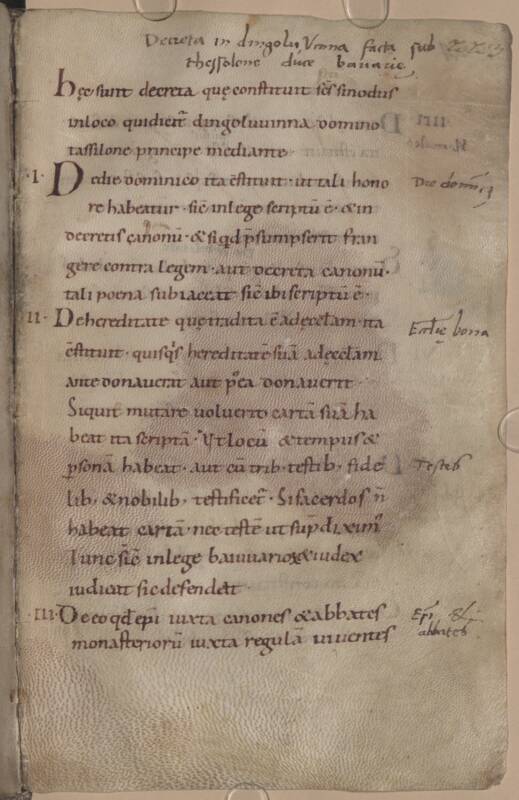 Decreta in dingolvi Vinna facta sub
thessolone duce bauarię
Hęc sunt decreta quę constituit scs sinodus
in loco qui dicit̄ dingoluuinna domno
tassilone principe mediante
·I· De die dominico ita c̄stituit · ut tali hono
re habeatur · sic̄ in lege scriptū ē · & in
decretis canonū · & si qd p̄sumpserit fran
gere contra legem · aut decreta canonū ·
tali poena subiaceat sic̄ ibi scriptū ē ·
II· De hereditate quę tradita ē ad ęccl̄am · ita
c̄stituit · quisq̄s hereditatē suā ad ęccl̄am
ante donauerit aut p̄ea donauerit ·
Si quit mutare uoluerit cartā suā ha
beat ita scriptā · Vt locū & tempus &
p̱sonā habeat · aut cū trib; testib; fide
lib; & nobilib; testificet̄ · Si sacerdos n̄
habeat cartā · nec testē ut sup̄ diximꝰ
Tunc sic̄ in lege baiuuarioꝝ & iudex
iudicat̄ sic defendat ·
·III· De eo qd ep̄i iuxta canones & abbates
monasteriorū iuxta regulā uiuentes
Die domīcꝫ
Ecclię bona
Testes
Ep̄i &
abbates